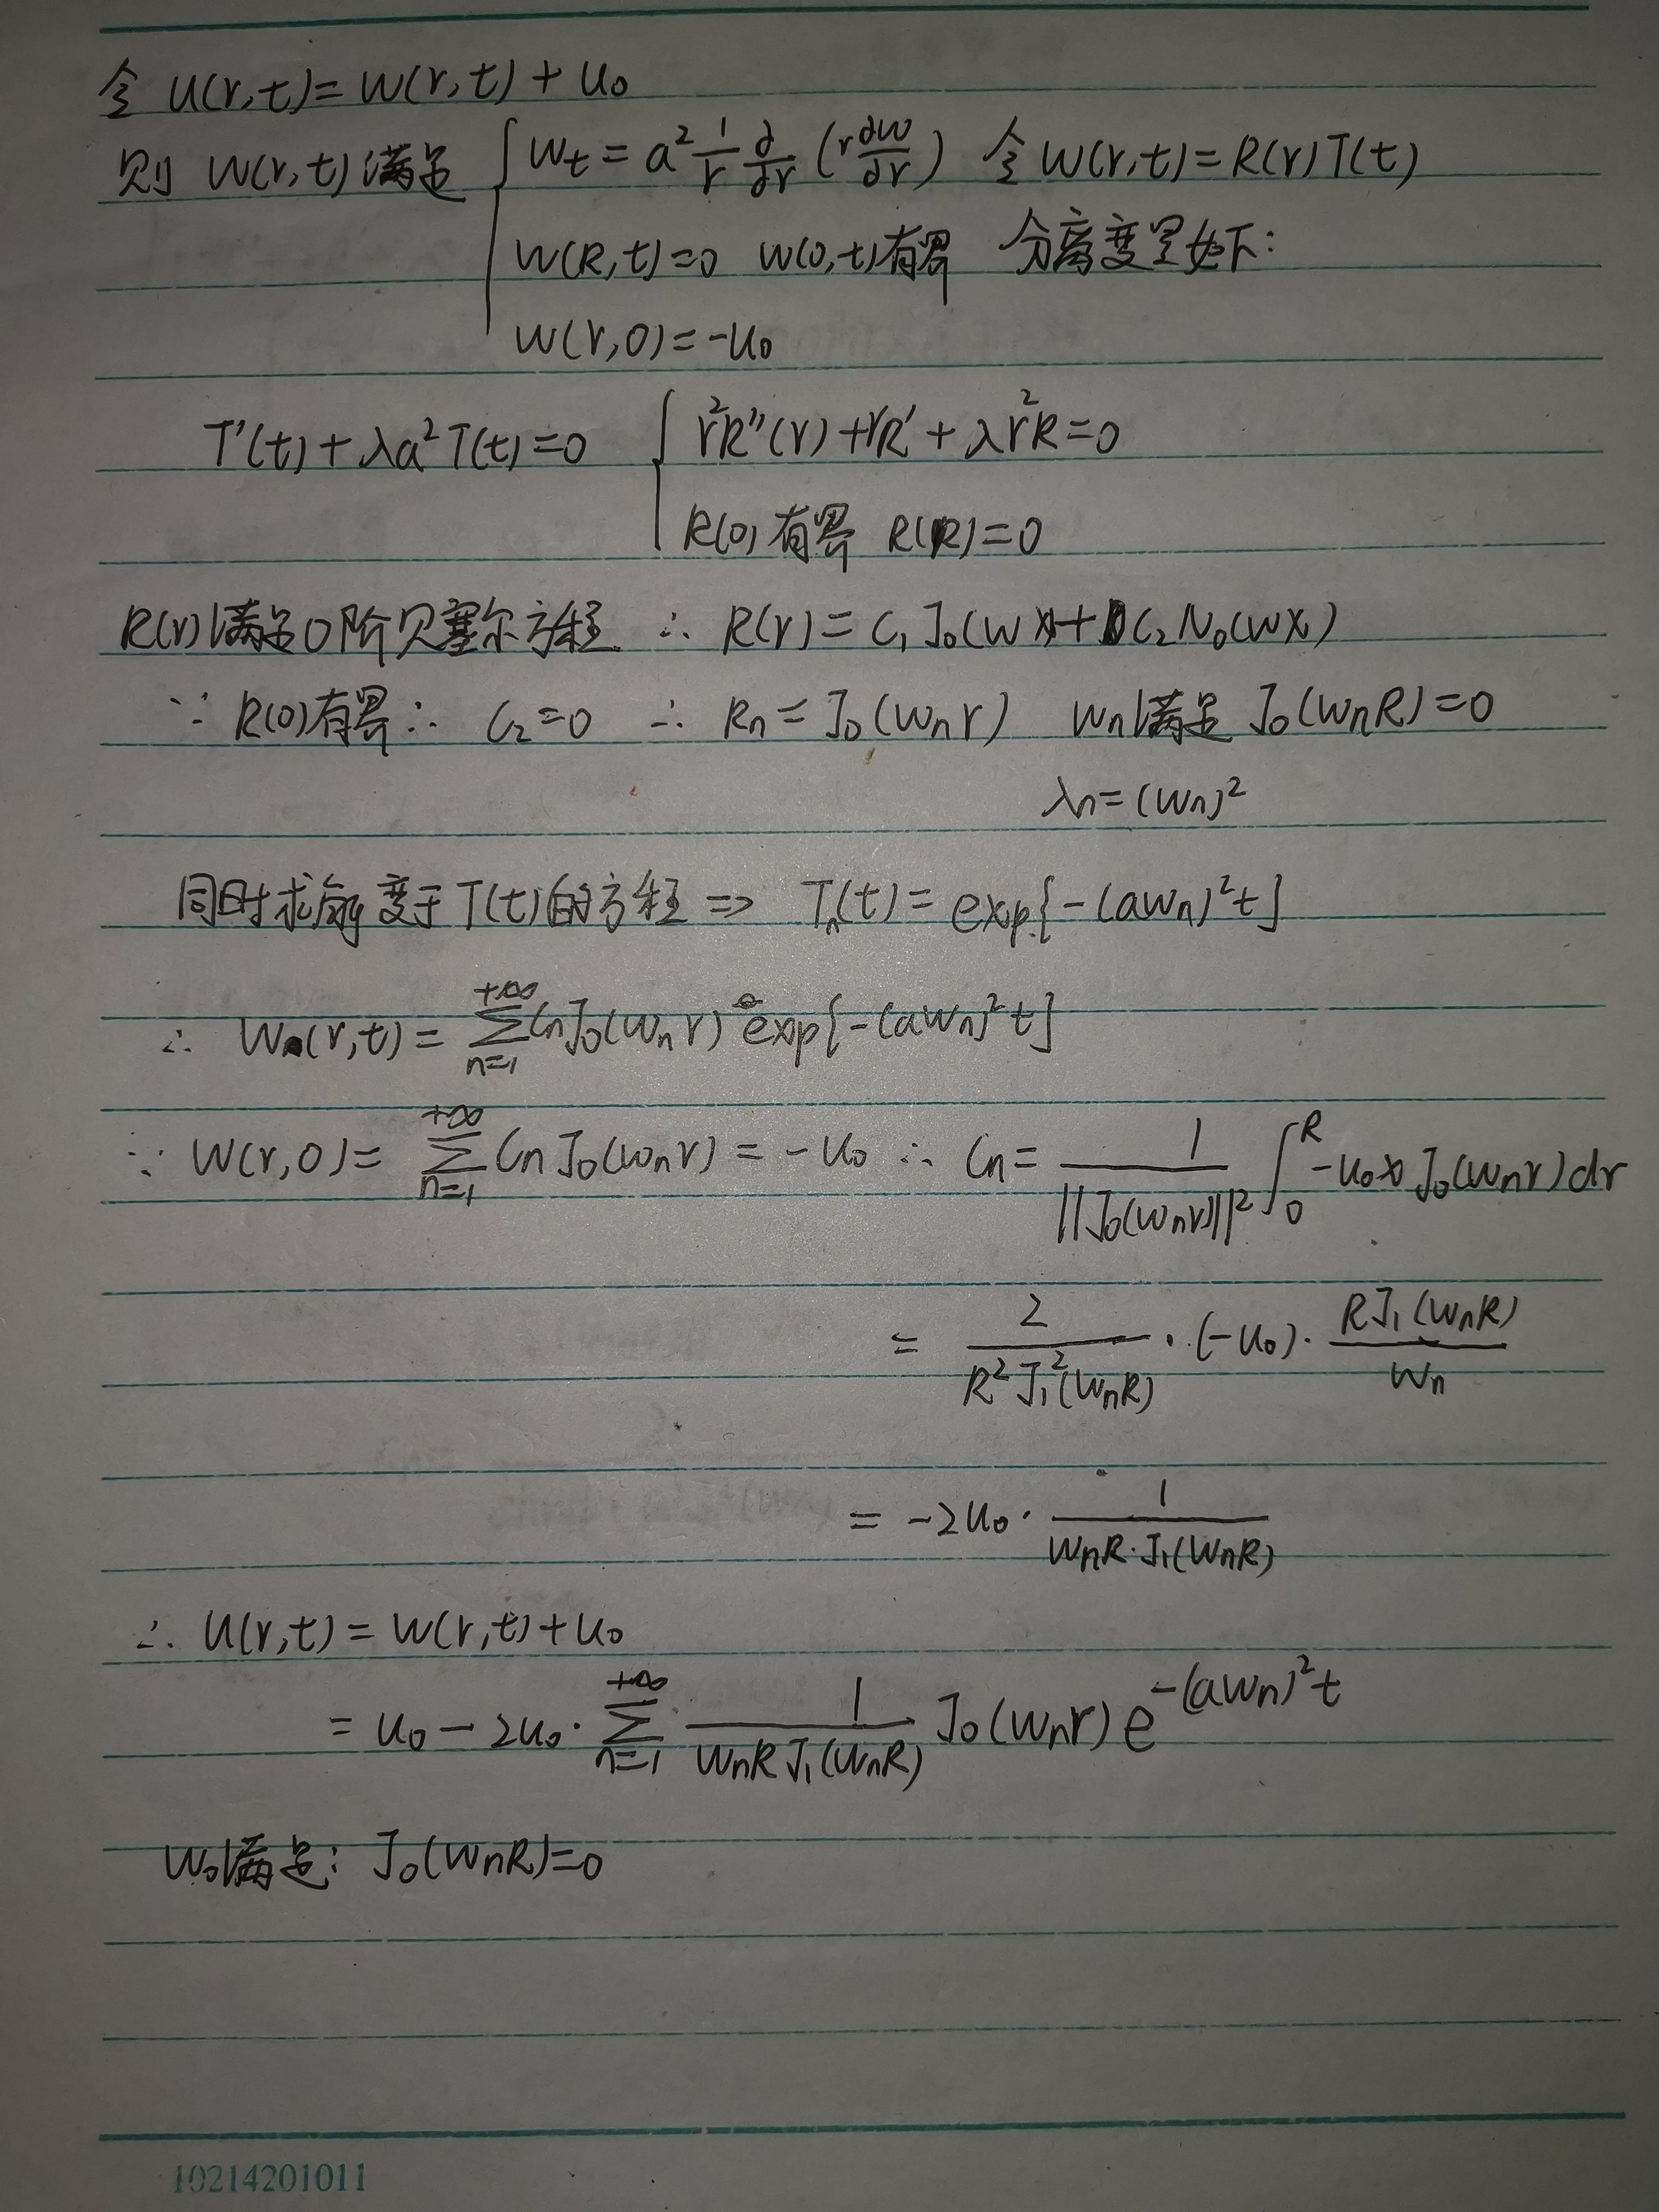 令 u(r,t)=w(r,t)+u₀
则 w(r,t)满足 { wt = a² 1/r ∂/∂r (r ∂w/∂r) 令 w(r,t)=R(r)T(t)
w(R,t)=0 w(0,t)有界 分离变量如下:
w(r,0)=-u₀
T'(t)+λa²T(t)=0 { r²R''(r)+rR'+λr²R=0
R(0)有界 R(R)=0
R(r)满足0阶贝塞尔方程 ∴ R(r)=C₁J₀(wx)+C₂N₀(wx)
∵ R(0)有界 ∴ C₂=0 ∴ Rn=J₀(wnr) wn满足 J₀(wnR)=0
λn=(wn)²
同时求解变于T(t)的方程 ⇒ Tn(t)=exp{-(awn)²t}
∴ w(r,t)= +∞ Σ n=1 CnJ₀(wnr) exp{-(awn)²t}
∵ w(r,0)= +∞ Σ n=1 CnJ₀(wnr)=-u₀ ∴ Cn= 1/||J₀(wnr)||² ∫₀ᴿ -u₀x J₀(wnr)dr
= 2/(R²J₁²(wnR)) · (-u₀) · RJ₁(wnR)/wn
= -2u₀ · 1/(wnR·J₁(wnR))
∴ u(r,t)=w(r,t)+u₀
= u₀-2u₀· +∞ Σ n=1 1/(wnRJ₁(wnR)) J₀(wnr)e^-(awn)²t
w₀满足: J₀(wnR)=0
10214201011